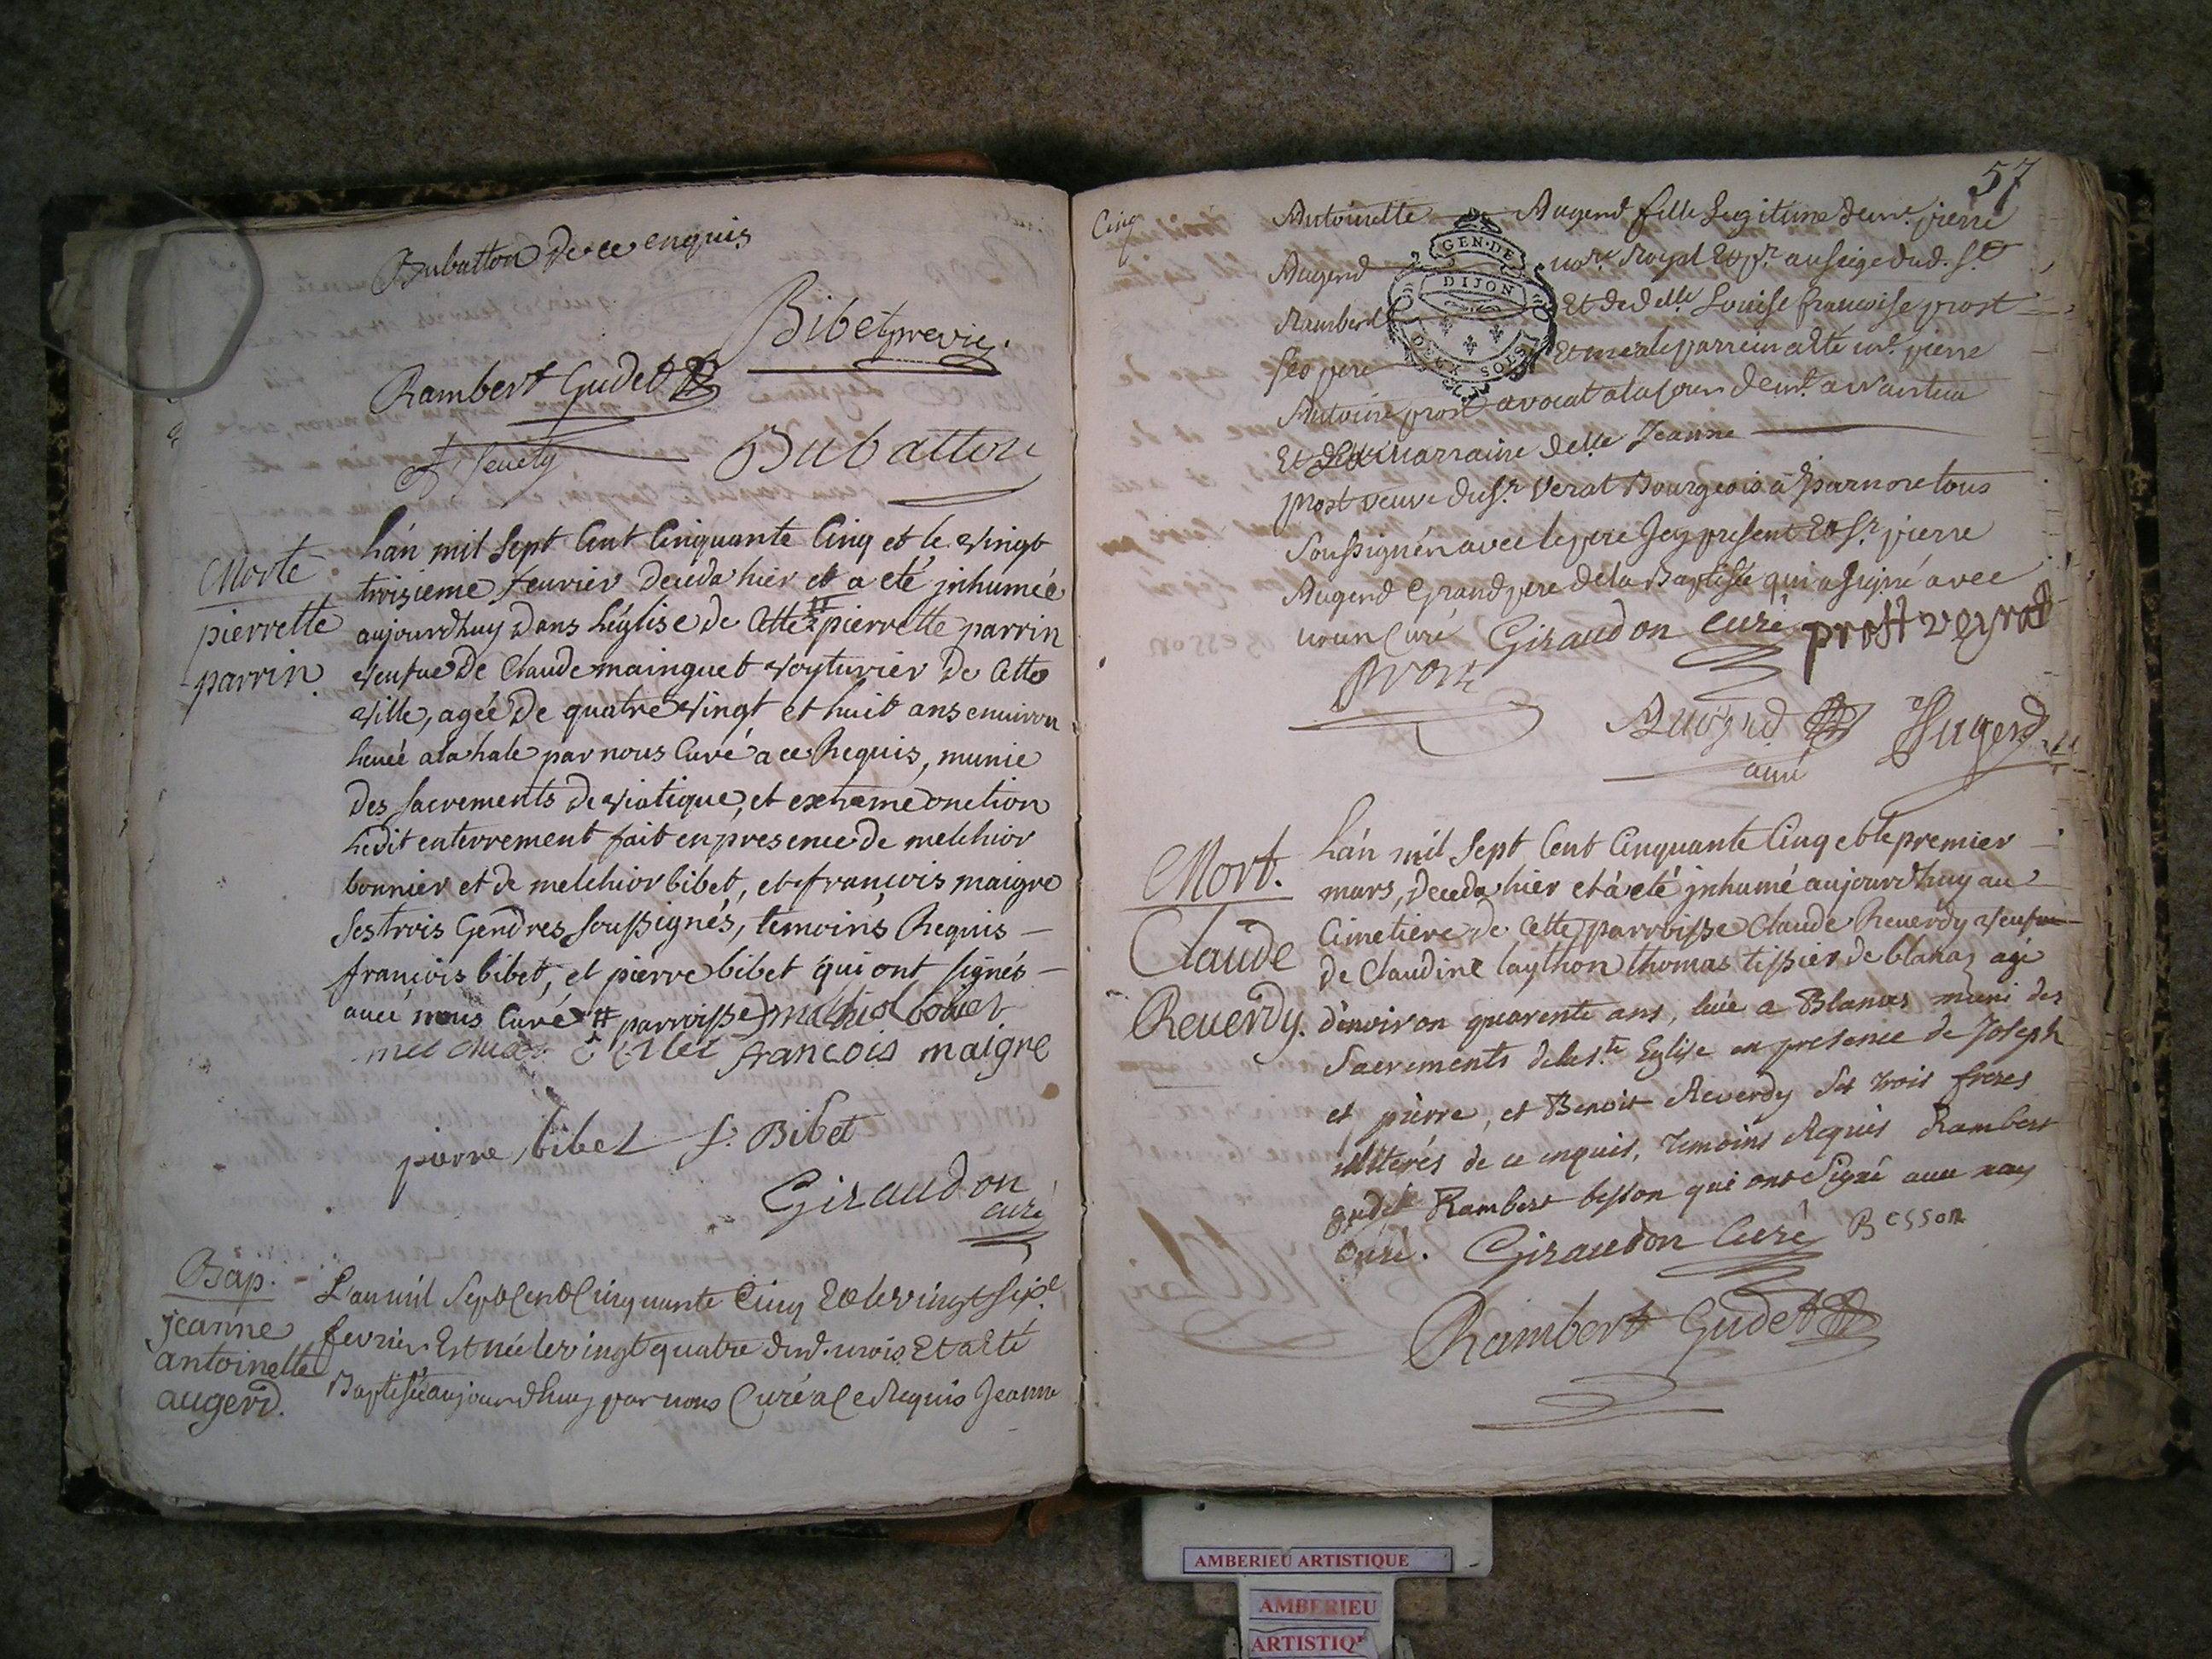 Dubatton de ce enquis
Bibet previe.
Rambert Gudet
Dubatton
Morte
pierrette
parrin.
L'an mil sept Cent Cinquante Cinq et le vingt
troisieme feurier deceda hier et a eté jnhumée
aujourdhuy Dans L'église de Cette # pierrette parrin
veufue De Claude mainguet voyturier de Cette
ville, agée De quatre vingt et huit ans enuiron
leuée a la hale par nous Curé a ce Requis, munie
des sacrements de viatique, et extreme onction
Ledit enterrement fait en presence de melchior
bonnier et de melchior bibet, et françois maigre
ses trois Gendres soussignés, temoins Requis
françois bibet, et pierre bibet qui ont signés
auec nous Curé # parroisse
françois maigre
pierre bibet f. Bibet
Giraudon
curé
Bap.
jeanne
antoinette
augerd.
L'an mil Sept Cent Cinquante Cinq Et le vingt six.e
fevrier Est née le vingt quatre dud. mois Et a Eté
Baptisée aujourdhuy par nous Curé a Ce Requis Jeanne
57
Cinq
Antoinette Augerd fille Legitime de me. pierre
Augerd no.re Royal Et p.r au siege dud. S.t
Rambert Et de d.elle Louise françoise prost
ses pere Et mere le parrein a Eté m.e pierre
Antoine prost avocat a la Cour
GEN. DE
DIJON
DEUX SOLS
Et La marraine d.elle Jeanne
prost veuve du S.r Verat Bourgeois a tous
Soussignés avec le pere Jcy present Et S.r pierre
Augerd Grand pere de la Baptisée qui a signé avec
nous Curé Giraudon curé prost veyrat
prost
Augerd
Augerd
Mort.
Claude
Reuerdy.
L'an mil sept Cent Cinquante Cinq et le premier
mars, deceda hier et à eté jnhumé aujourdhuy au
Cimetiere de Cette parroisse Claude Reuerdy veufue
de Claudine laython thomas tissier de blanaz agé
d'environ quarente ans, luée a Blanas muni des
Sacrements de la s.te Eglise en presence de Joseph
et pierre, et Benoit Reverdy ses trois freres
illiterés de ce enquis, temoins Requis Rambert
gudet Rambert besson qui ont Signé avec nous
Curé. Giraudon Curé Besson
Rambert Gudet
AMBERIEU ARTISTIQUE
AMBERIEU
ARTISTIQ